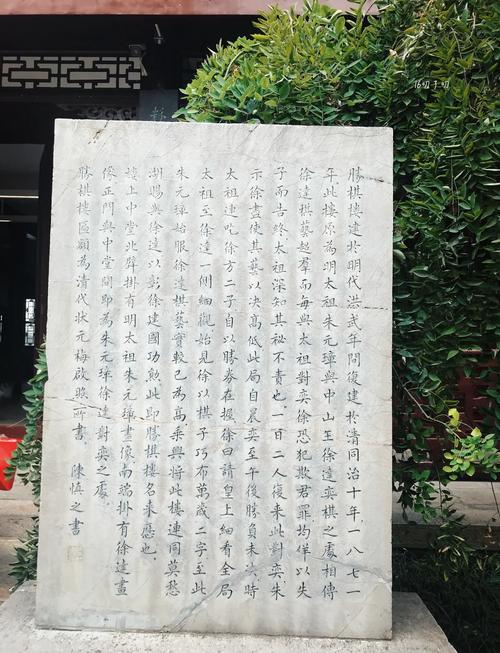 勝棋樓建於明代洪武年間復建於清同治十年一八七一
年此樓原為明太祖朱元璋與中山王徐達奕棋之處相傳
徐達棋藝超羣而每與太祖對奕徐恐犯欺君罪均佯以失
子而告終太祖深知其秘不責也一日二人復來此對奕朱
示徐盡使其藝以决高低此局自晨奕至午後勝負未决時
太祖連吃徐方二子自以勝券在握徐曰請皇上細看全局
太祖至徐達一側細觀始見徐以棋子巧布萬歲二字至此
朱元璋始服徐達棋藝實較己為高乘興將此樓連同莫愁
湖賜與徐達以彰徐建國功勲此即勝棋樓名來歷也
樓上中堂北壁掛有明太祖朱元璋畫像南端掛有徐達畫
像正門與中堂間即為朱元璋徐達對奕之處
勝棋樓匾額為清代狀元梅啟照所書 陳慎之書